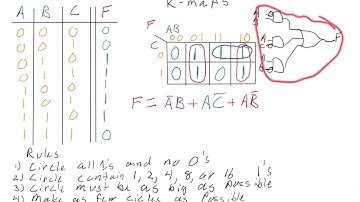 K-maps
A B C F
0 0 0 0
0 0 1 0
0 1 0 1
0 1 1 1
1 0 0 1
1 0 1 1
1 1 0 1
1 1 1 0
F AB
C 00 01 11 10
0 0 1 1 1
1 0 1 0 1
F = A̅B + AC̅ + AB̅
F
Rules
1) Circle all 1's and no 0's
2) Circle contain 1, 2, 4, 8, or 16 1's
3) Circle must be as big as possible
4) Make as few circles as Possible